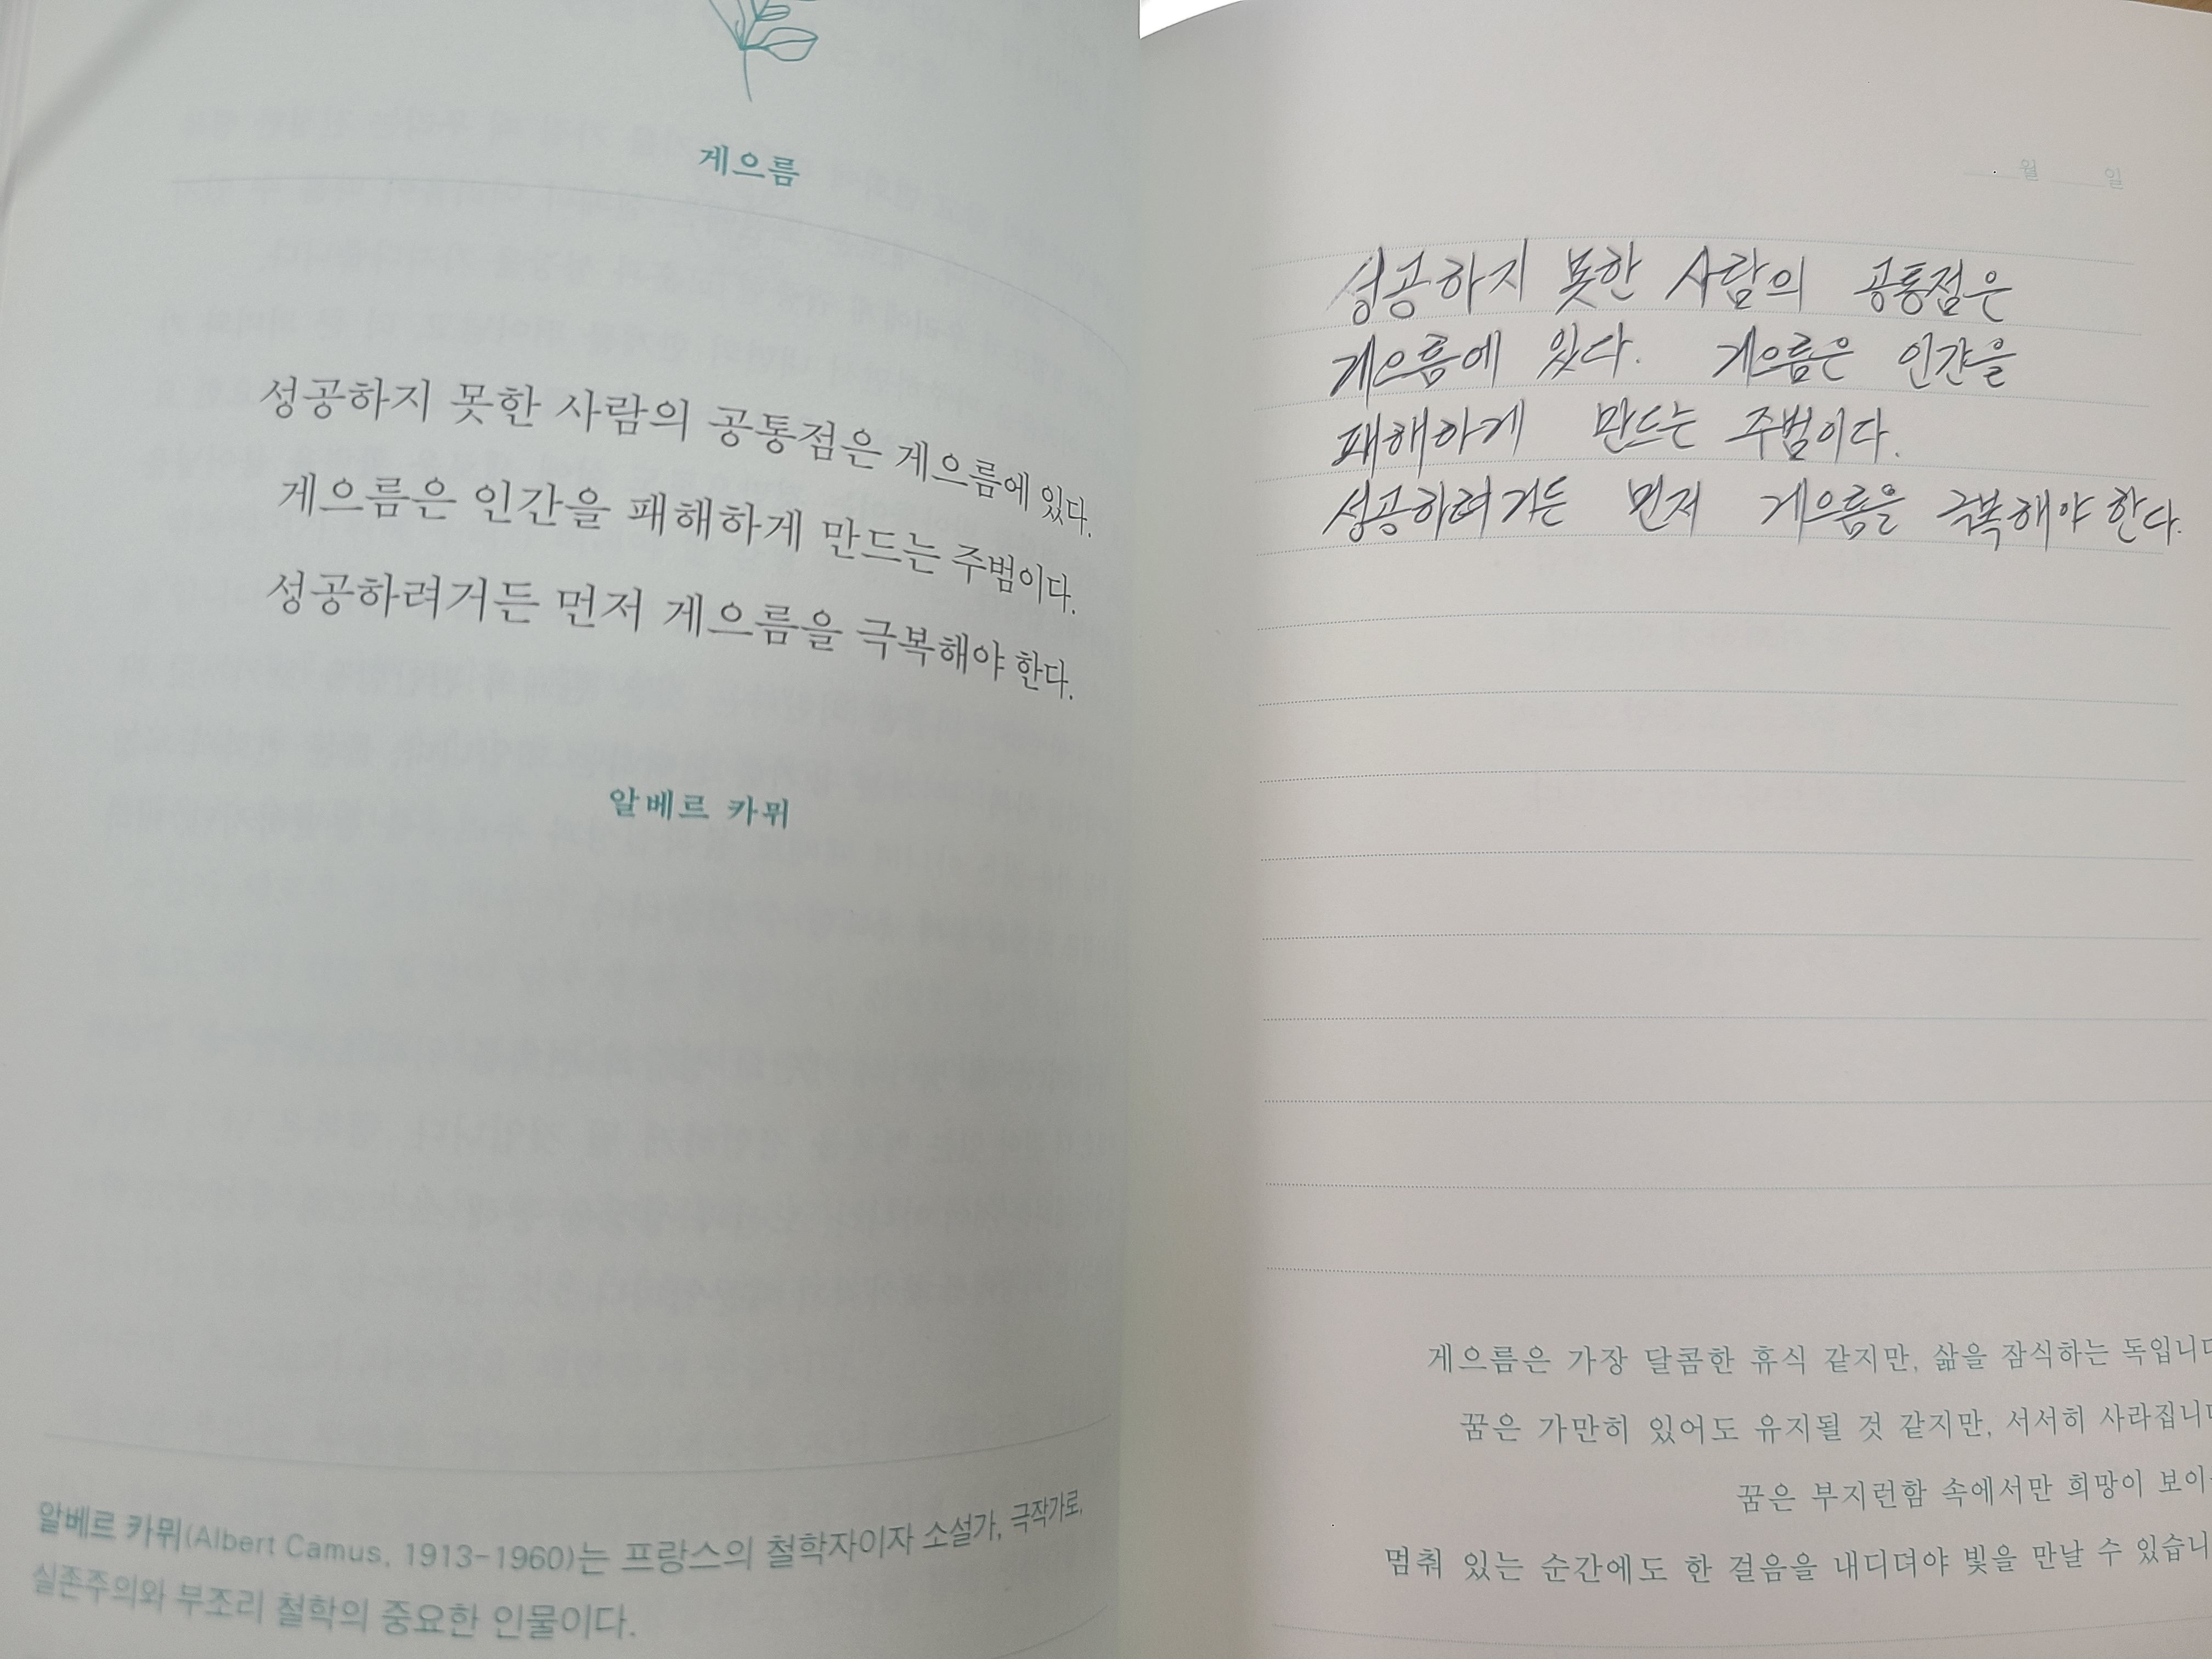 게으름
성공하지 못한 사람의 공통점은 게으름에 있다.
게으름은 인간을 패해하게 만드는 주범이다.
성공하려거든 먼저 게으름을 극복해야 한다.
알베르 카뮈
알베르 카뮈(Albert Camus, 1913-1960)는 프랑스의 철학자이자 소설가, 극작가로,
실존주의와 부조리 철학의 중요한 인물이다.
월 일
성공하지 못한 사람의 공통점은
게으름에 있다. 게으름은 인간을
패해하게 만드는 주범이다.
성공하려거든 먼저 게으름을 극복해야 한다.
게으름은 가장 달콤한 휴식 같지만, 삶을 잠식하는 독입니다
꿈은 가만히 있어도 유지될 것 같지만, 서서히 사라집니다
꿈은 부지런함 속에서만 희망이
멈춰 있는 순간에도 한 걸음을 내디뎌야 빛을 만날 수 있습니